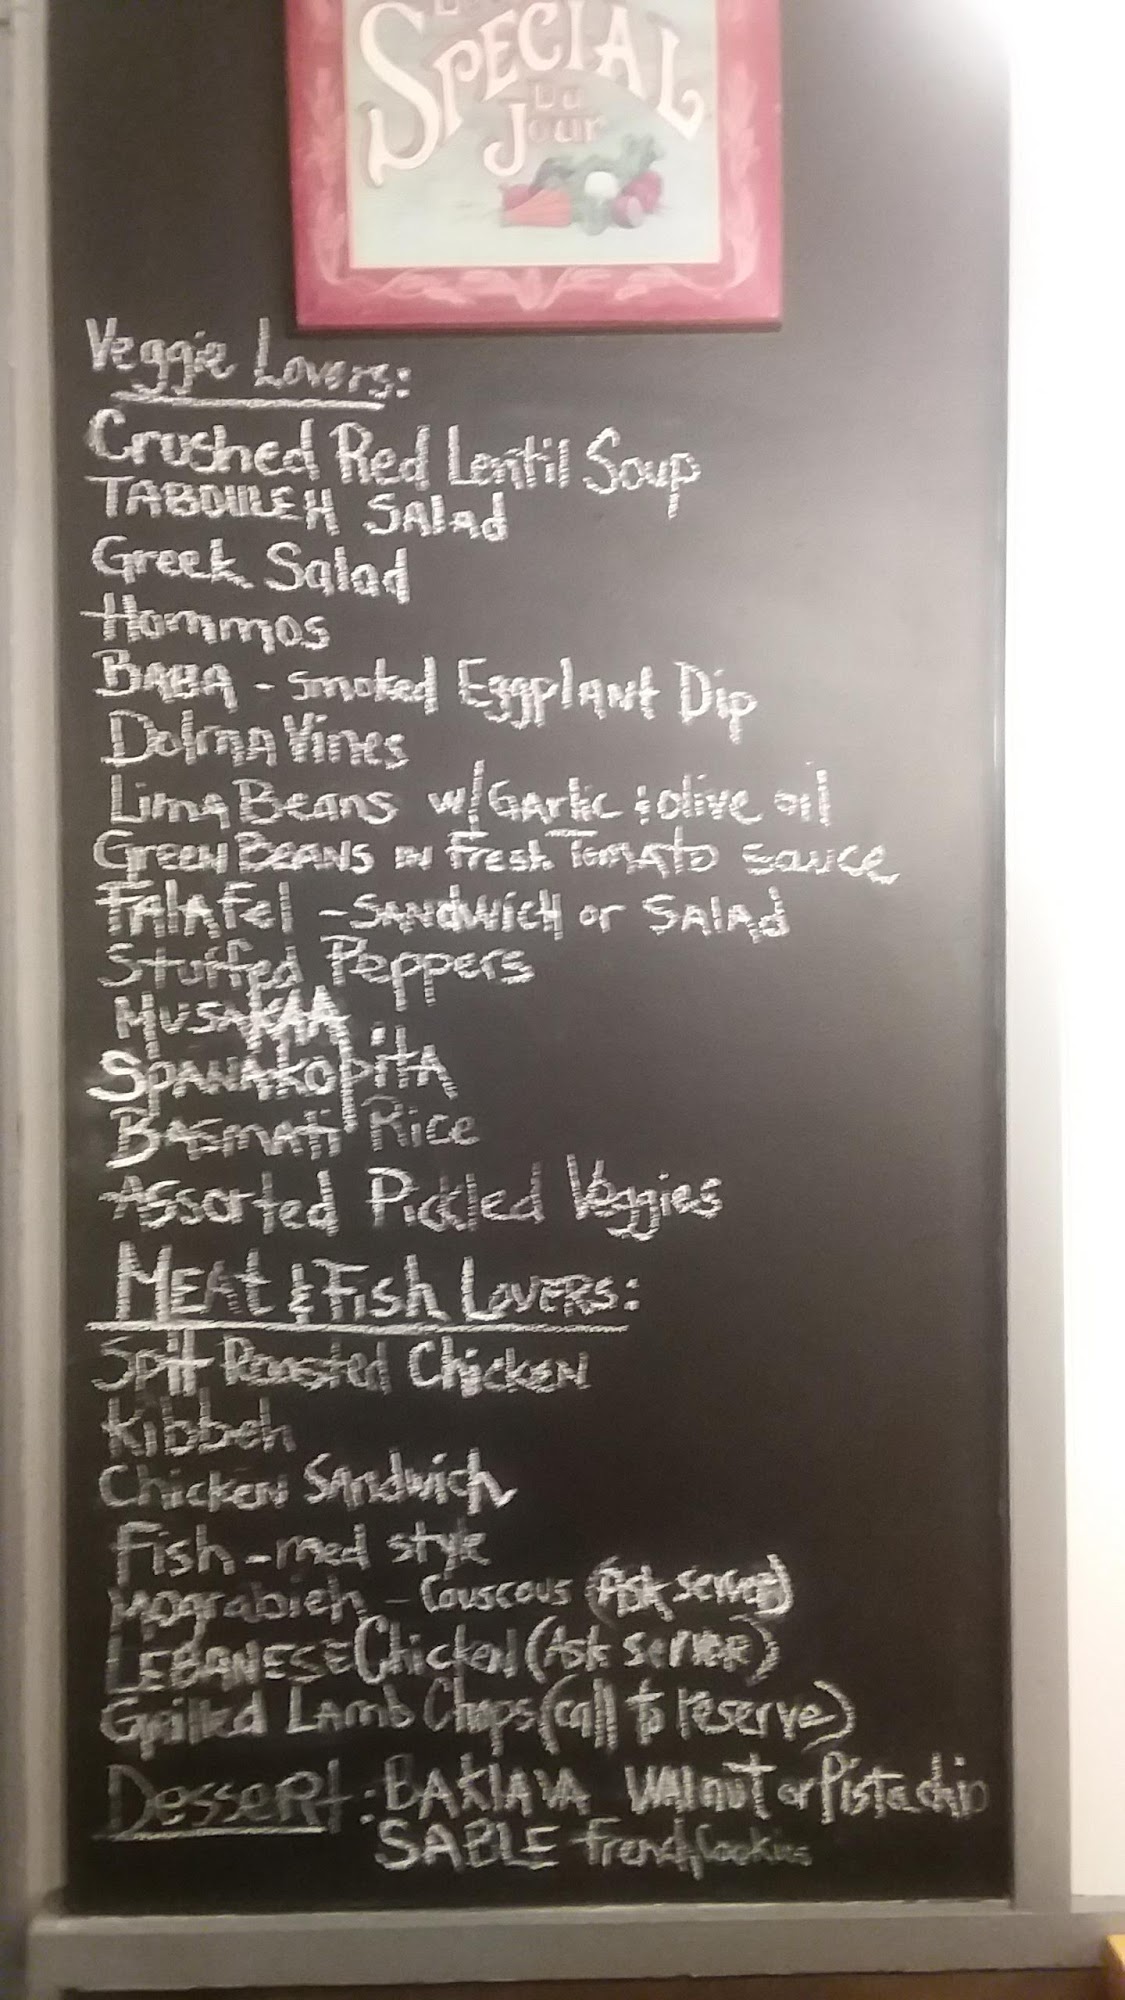 SPECIAL
Du
Jour
Veggie Lovers:
Crushed Red Lentil Soup
TABOULEH SALAd
Greek Salad
Hommos
BABA - smoked EggplANt Dip
DolmA Vines
Lima Beans w/ GArlic & olive oil
GREEN BEANS IN Fresh TOMATO sauce
FALAFEl - SANDWICH or SALAd
Stuffed Peppers
MUSAKAA
SPANAKOpitA
BASmati Rice
Assorted Pickled Veggies
MEAT & Fish LOVERS:
Spit Roasted ChickEN
Kibbeh
ChickEN SANdwich
Fish - med style
Mograbieh - Couscous (Ask server)
LEBANESE Chicken (Ask servER)
Grilled LAmb Chops (call to reserve)
DesseRt: BAKlAVA - WAlnut or Pistachio
SABLE French Cookies